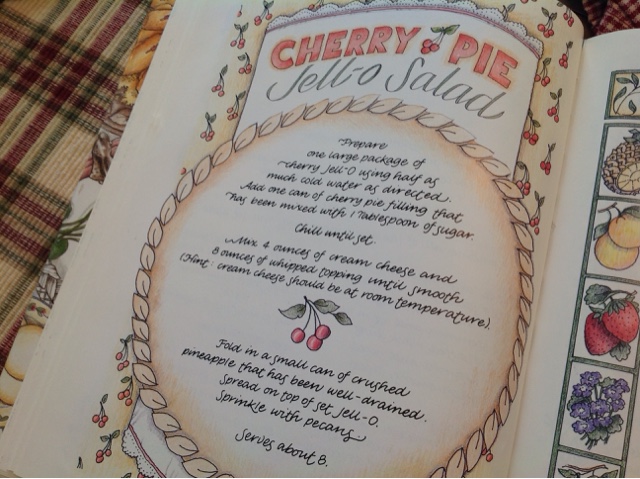 CHERRY PIE
Jell-o Salad
Prepare
one large package of
cherry Jell-O using half as
much cold water as directed.
Add one can of cherry pie filling that
has been mixed with 1 Tablespoon of sugar.
Chill until set.
Mix 4 ounces of cream cheese and
8 ounces of whipped topping until smooth
(Hint: cream cheese should be at room temperature).
Fold in a small can of crushed
pineapple that has been well-drained.
Spread on top of set Jell-O.
Sprinkle with pecans
Serves about 8.